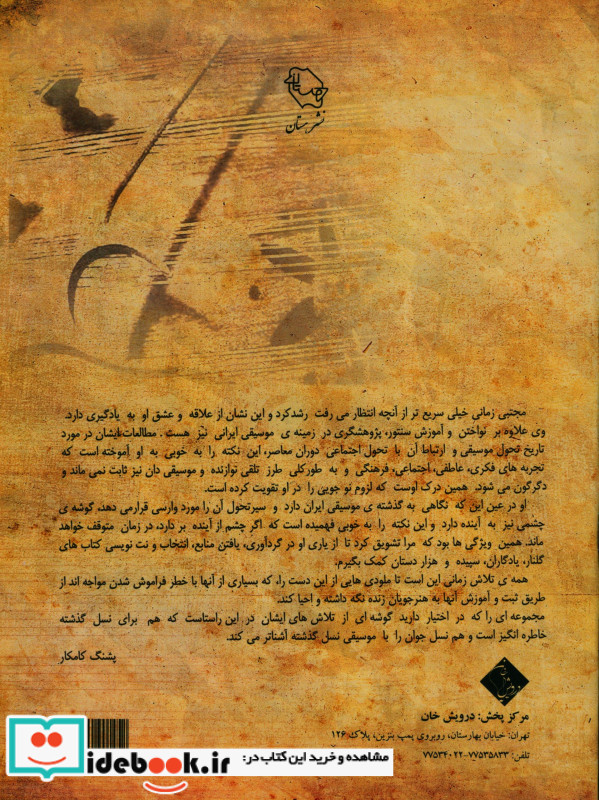 نشر هستان
مجتبی زمانی خیلی سریع تر از آنچه انتظار می رفت رشدکرد و این نشان از علاقه و عشق او به یادگیری دارد.
وی علاوه بر نواختن و آموزش سنتور، پژوهشگری در زمینه ی موسیقی ایرانی نیز هست . مطالعات ایشان در مورد
تاریخ تحول موسیقی و ارتباط آن با تحول اجتماعی دوران معاصر، این نکته را به خوبی به او آموخته است که
تجربه های فکری، عاطفی، اجتماعی، فرهنگی و به طورکلی طرز تلقی نوازنده و موسیقی دان نیز ثابت نمی ماند و
دگرگون می شود. همین درک اوست که لزوم نو جویی را در او تقویت کرده است.
او در عین این که نگاهی به گذشته ی موسیقی ایران دارد و سیرتحول آن را مورد وارسی قرارمی دهد، گوشه ی
چشمی نیز به آینده دارد و این نکته را به خوبی فهمیده است که اگر چشم از آینده بر دارد، در زمان متوقف خواهد
ماند. همین ویژگی ها بود که مرا تشویق کرد تا از یاری او در گردآوری، یافتن منابع، انتخاب و نت نویسی کتاب های
گلنار، یادگاران، سپیده و هزار دستان کمک بگیرم.
همه ی تلاش زمانی این است تا ملودی هایی از این دست را، که بسیاری از آنها با خطر فراموش شدن مواجه اند از
طریق ثبت و آموزش آنها به هنرجویان زنده نگه داشته و احیا کند.
مجموعه ای را که در اختیار دارید گوشه ای از تلاش های ایشان در این راستاست که هم برای نسل گذشته
خاطره انگیز است و هم نسل جوان را با موسیقی نسل گذشته آشناتر می کند.
پشنگ کامکار
مرکز پخش: درویش خان
تهران: خیابان بهارستان، روبروی پمپ بنزین، پلاک ۱۲۶
تلفن: ۷۷۵۳۵۸۳۳-۷۷۵۳۴۰۲۲
مشاهده و خرید این کتاب در:
idebook.ir